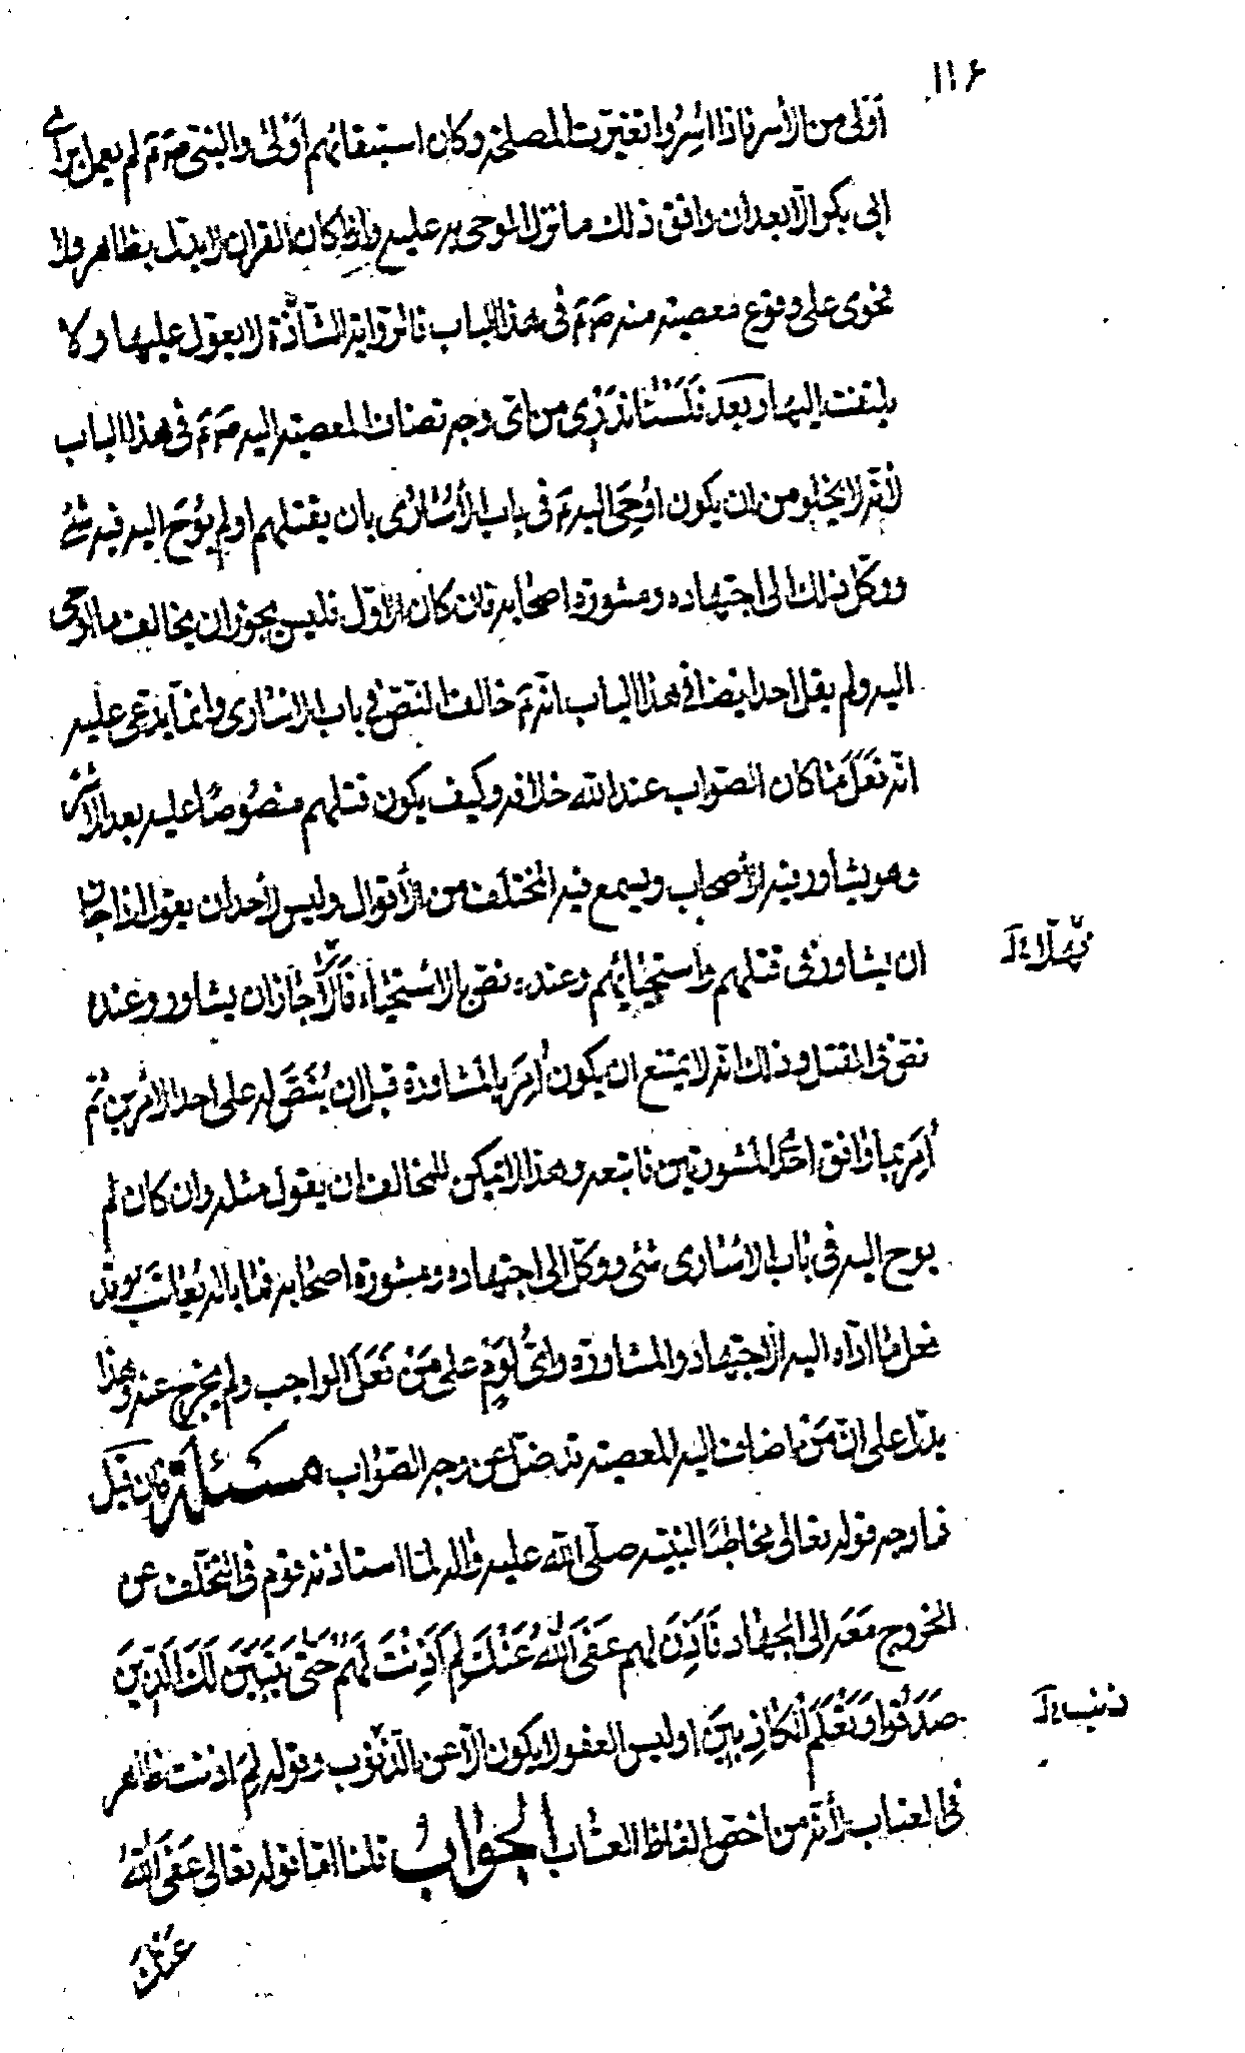 ۱۱۶
أولى من الأسر فاذا اُسِرُوا تغيّرت المصلحة وكان استبقائهم أَوْلىٰ والنبي صَ م لم يعمل برأي
ابي بكر الّا بعد ان وافق ذلك ما نزل الوحي به عليه واذا كان القران لا يدل بظاهر ولا
فحوى على وقوع معصية منه صَ م في هذا الباب فالرّواية الشّاذّة لا يعوّل عليها ولا
يلتفت اليها وبَعد فَلَسْنا نَدْري من اىّ وجه تضاف المعصية اليه صَ م في هذا الباب
لأنّه لا يخلو من ان يكون اُوحِىَ اليه م في باب الأُسارى بان يقتلهم او لم يُوحَ اليه فيه شئ
ووكّل ذلك الى اجتهاده ومشورة اصحابه فان كان الأوّل فليس يجوز ان يخالف ما اوحى
اليه ولم يقل احد ايضا في هذا الباب انّه م خالف النّصّ في باب الاسارى وانّما يدّعى عليه
انّه فَعَلَ ما كان الصّواب عند الله خلافه وكيف يكون قتلهم منصوصًا عليه بعد الاسر
وهو يشاور فيه الأصحاب ويسمع فيه المختلف من الأقوال وليس لأحد ان يقول اذا جاز
ان يشاور في قتلهم واستحيائهم وعنده نصّ بالاستحياء فَألّا جاز ان يشاور وعنده
فهلّا
نصّ في القتل وذلك انّه لا يمتنع ان يكون اُمِرَ بالمشاورة قبل ان يُنَصَّ له على احد الأمرين ثم
اُمِرَ بما وافق احدَى المشورتين فاتبعه وهذا لا يمكن للمخالف ان يقول مثله وان كان لم
يوح اليه في باب الاسارى شئ ووكّل الى اجتهاده ومشورة اصحابه فما باله يُعاتَب وقد
فعل ما ادّاه اليه الاجتهاد والمشاورة واىُّ لَوْمٍ على مَنْ فَعَلَ الواجب ولم يخرج عنه وهذا
يدلّ على انّ مَنْ اضاف اليه المعصية قد ضلّ عن وجه الصّواب مسئلة فان قيل
فما وجه قوله تعالى مخاطبًا لنبيّه صلّى الله عليه واله لمّا استاذنه قوم في التخلّف عن
الخروج مَعَه الى الجهاد فَأَذِنَ لهم عَفَى اللهُ عَنْكَ لِمَ أَذِنْتَ لَهُمْ حَتّٰى يَتَبَيَّنَ لَكَ الَّذِينَ
صَدَقُوا وَتَعْلَمَ الْكَاذِبِينَ اوليس العفو لا يكون الّا عن الذّنوب وقوله لِمَ اذنت ظاهر
في العتاب لأنّه من اخصّ الفاظ العتاب الجوابُ قلنا امّا قوله تعالى عَفَى اللهُ
عَنْكَ